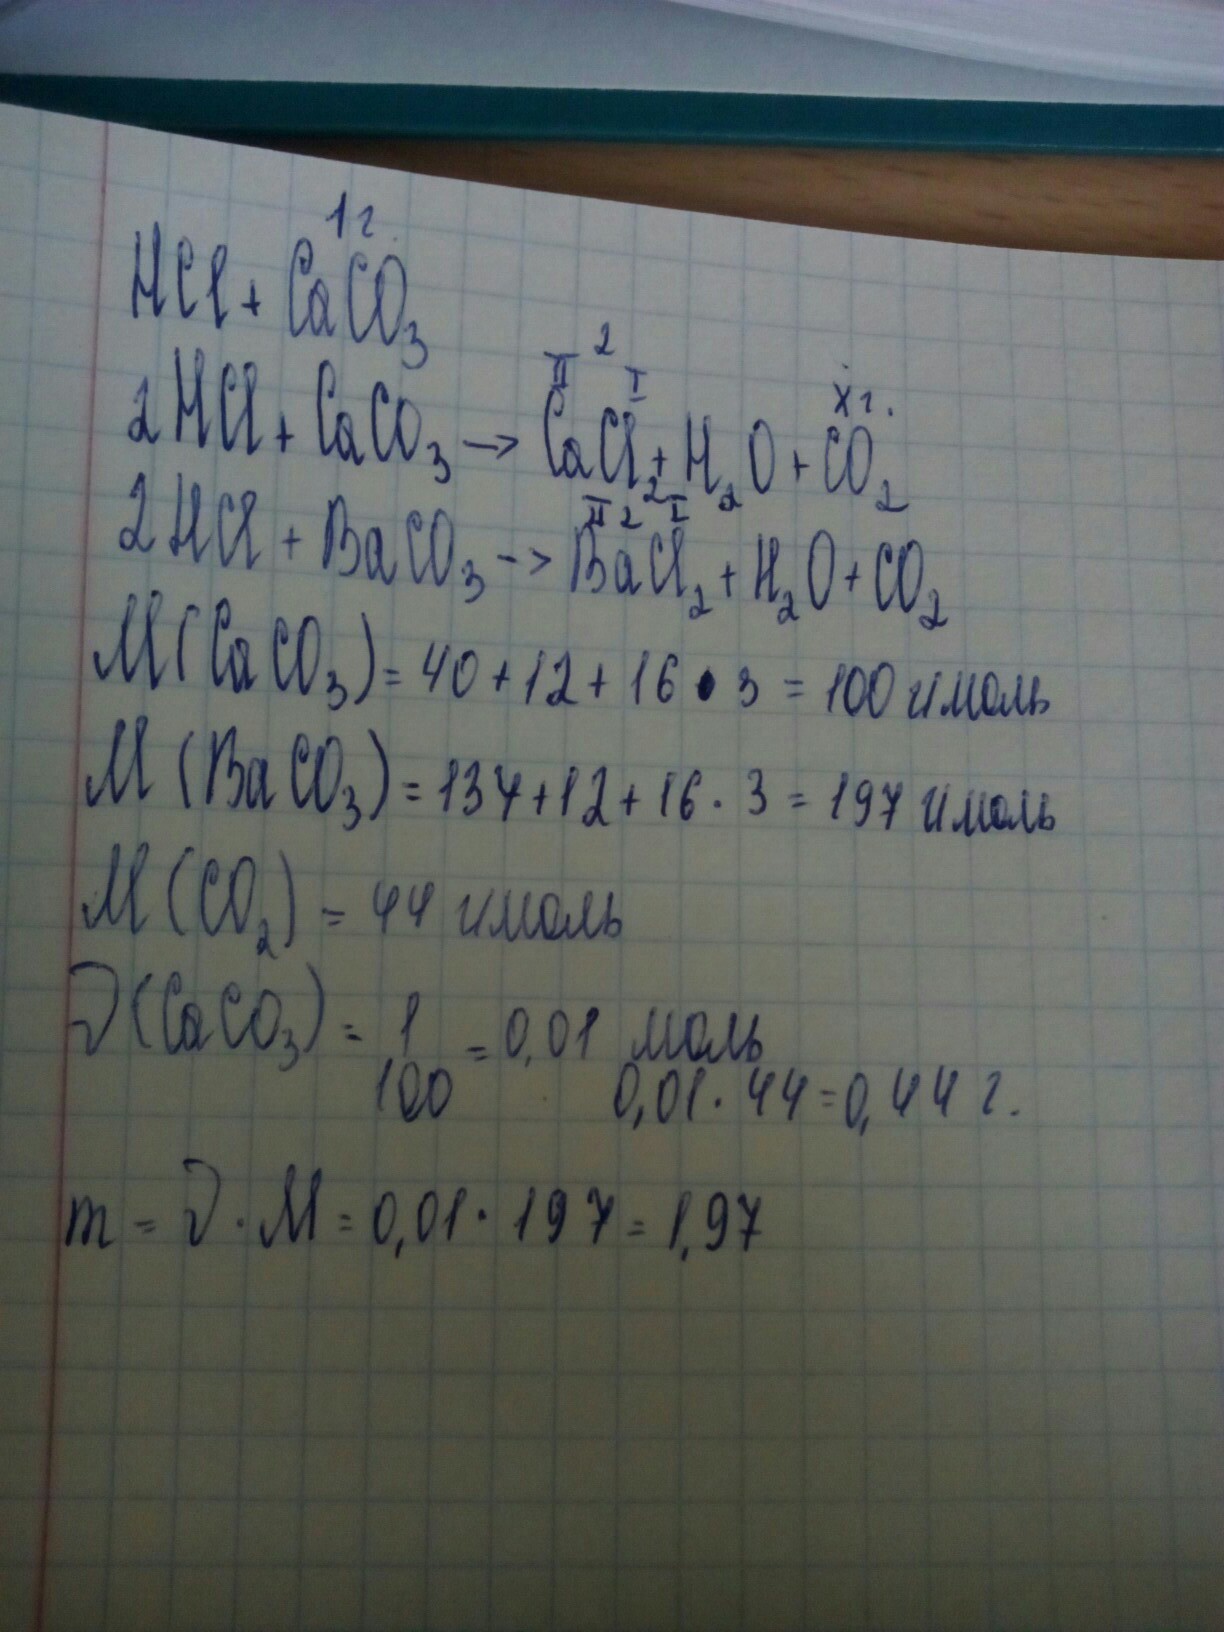 1 г.
HCl + CaCO₃
II 2 I
x г.
2HCl + CaCO₃ → CaCl₂ + H₂O + CO₂
II 2 I
2HCl + BaCO₃ → BaCl₂ + H₂O + CO₂
M(CaCO₃) = 40 + 12 + 16 · 3 = 100 г/моль
M(BaCO₃) = 137 + 12 + 16 · 3 = 197 г/моль
M(CO₂) = 44 г/моль
ν(CaCO₃) = 1/100 = 0,01 моль
0,01 · 44 = 0,44 г.
m = ν · M = 0,01 · 197 = 1,97